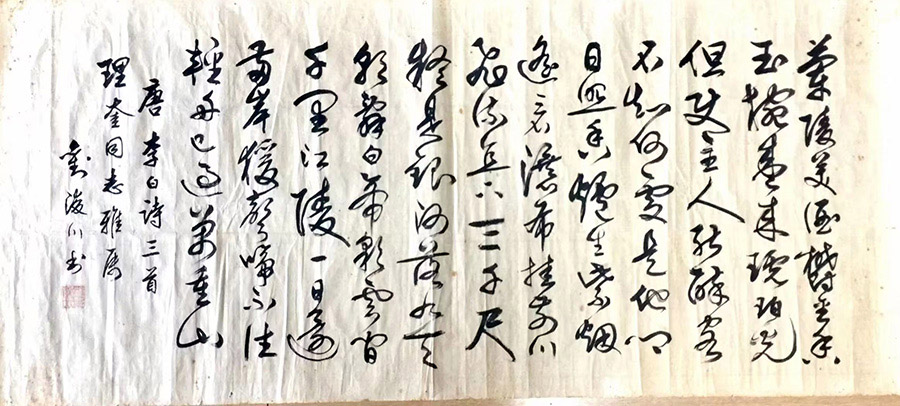 蘭陵美酒鬱金香
玉椀盛来琥珀光
但使主人能醉客
不知何處是他鄉
日照香爐生紫烟
遥看瀑布挂前川
飛流直下三千尺
疑是銀河落九天
朝辭白帝彩雲間
千里江陵一日還
兩岸猿聲啼不住
輕舟已過萬重山
唐李白詩三首
理奎同志雅屬
劉浚川书